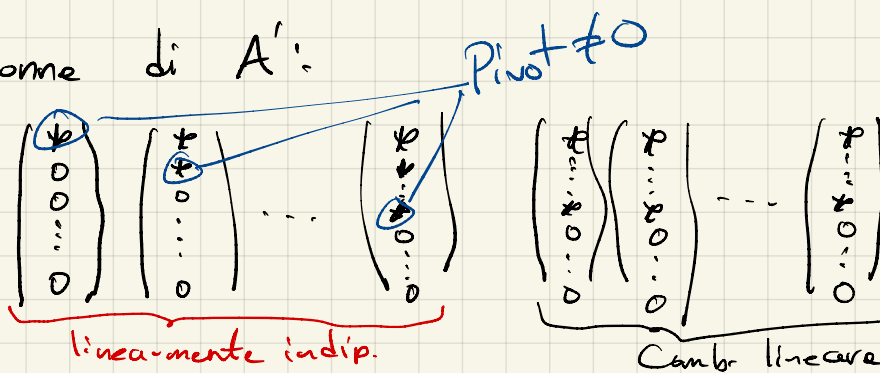 onne di A':
Pivot ≠ 0
( * 0 0 ⋮ 0 ) ( * * 0 ⋮ 0 ) ... ( * * ⋮ * 0 ⋮ 0 ) ( * ⋮ * 0 ⋮ 0 ) ( * ⋮ * 0 ⋮ 0 ) --- ( * ⋮ * 0 ⋮ 0 )
linearmente indip.
Comb. lineare